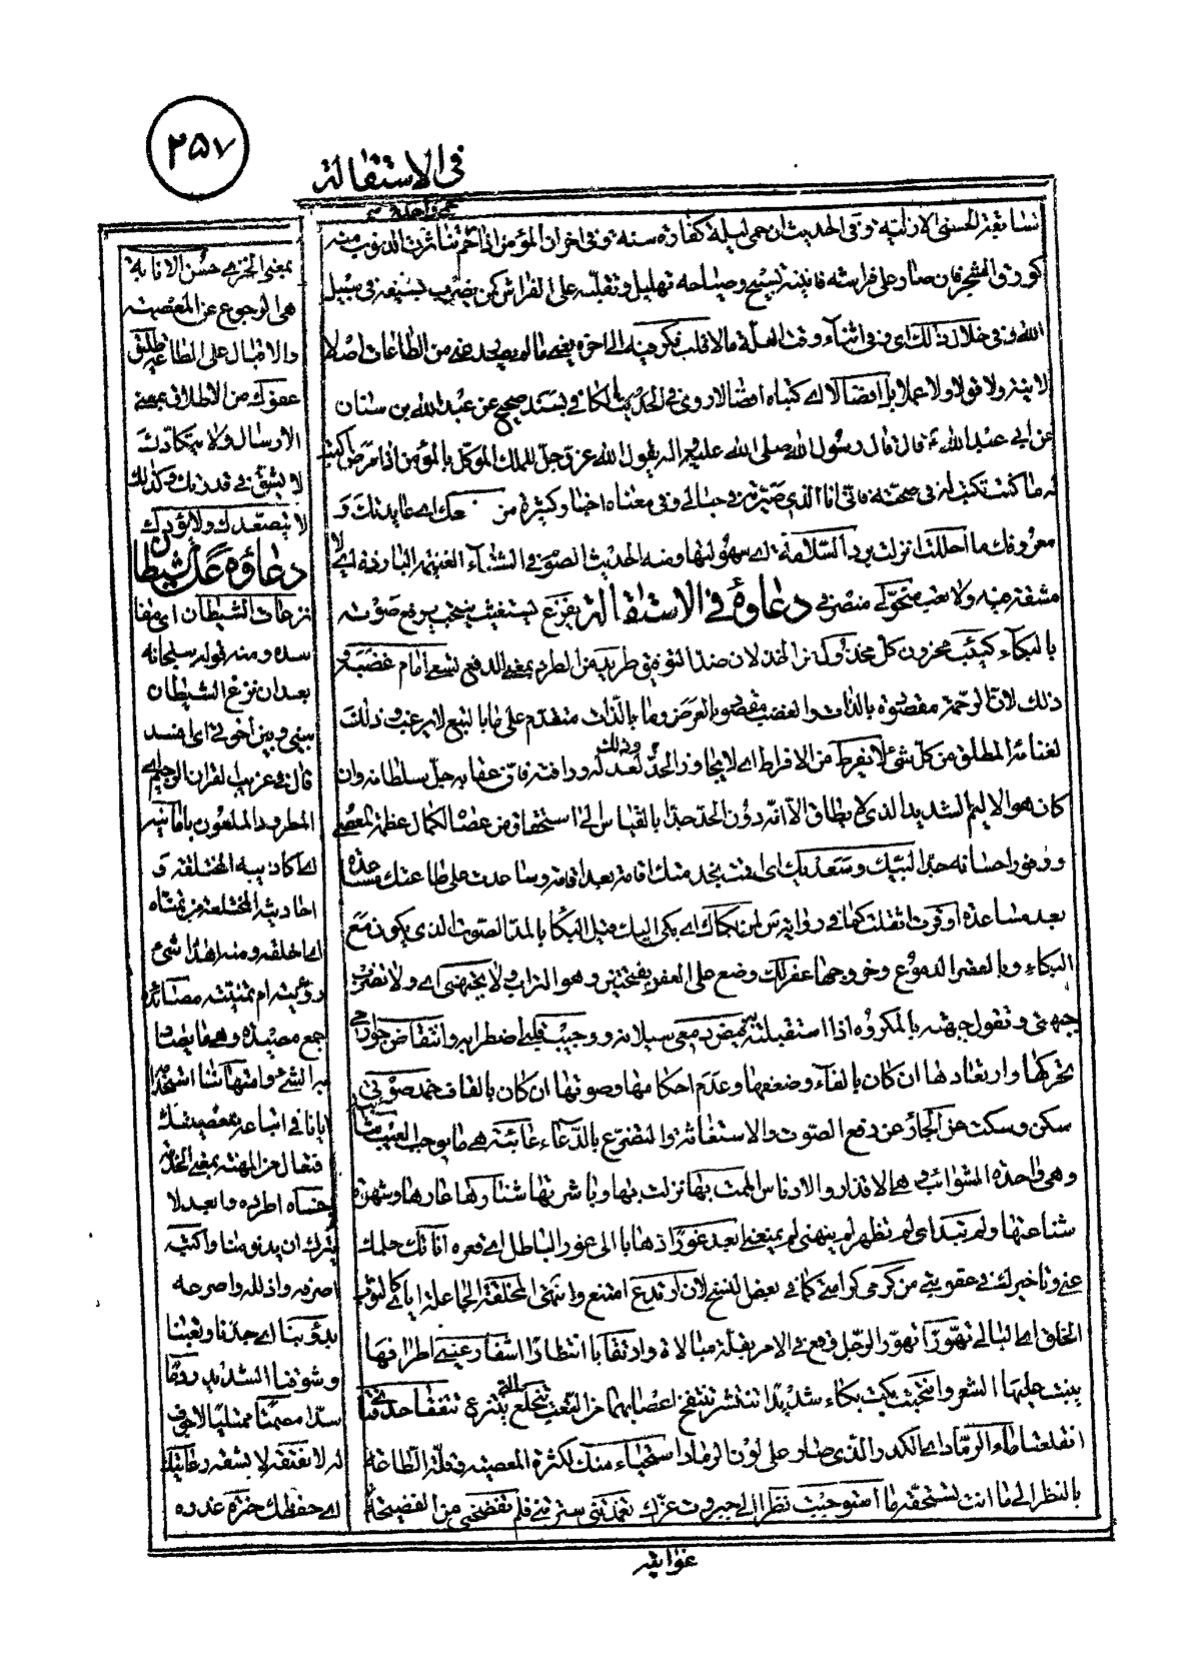 ۲۵۷
في الاستقالة
حمى واحدة
سابقة الحسنى الازلية وفى الحديث ان حمى ليلة كفارة سنة وفى اخران المؤمن اذا حم تناثرت الذنوب منه
كورق الشجر فان صار على فراشه فانينه تسبيح وصياحه تهليل وتقلبه على الفراش كمن يضرب بسيفه فى سبيل
الله وفى خلال ذلك اى فى اثناء وقت العلة مالا قلب فكر فيه الى اخره يعنى ما لم يصدر من الطاعات اصلا
لا نية ولا قولا ولا عملا بل افضالا اى كتباه افضالا روى فى الحديث الكافى بسند صحيح عن عبد الله بن سنان
عن ابى عبد الله ع قال قال رسول الله صلى الله عليه واله يقول الله عز وجل للملك الموكل بالمؤمن اذا مرض اكتب
له ما كنت تكتب له فى صحته فانى انا الذى صيرته فى حبالى وفى معناه اخبار كثيرة من اى عايدتك و
معروفك ما احللت انزلت برد السلامة اى سهولتها ومنه الحديث الصوم فى الشتاء الغنيمة الباردة اى لا
مشقة فيه ولا تعب متحولى منصرفى دعاؤه في الاستقالة يفزع يستغيث ينتحب يرفع صوته
بالبكاء كئيب محزون كل مخذول لان ضد التوفيق طريد من الطرد بمعنى الدفع تسعى امام غضبه و
ذلك لان الرحمة مقصودة بالذات والغضب مقصود بالعرض وما بالذات متقدم على ما بالتبع لا يرغب وذلك
لغنائه المطلق من كل شئ لا يفرط من الافراط اى لا يجاوز الحد وذلك لعدله ورافته فان عقابه جل سلطانه وان
كان هو الاليم الشديد الذى لا يطاق الا انه دون الحد جدا بالقياس الى استحقاق من عصا لكمال عظمة المعصى
ووفور احسانه جدا لبيك وسعديك اى اقمت بخدمتك اقامة بعد اقامة وساعدت على طاعتك مساعدة
بعد مساعدة اوقرت اثقلت كما فى رواية س لمن بكاك اى بكى اليك مثل البكا بالمد الصوت الذى يكون مع
البكاء وبالقصر الدموع وخروجها عفر لك وضع على العفر بفتحتين وهو التراب ولا تجبهنى اى ولا تضرب
جبهتى وتقول جبهته بالمكروه اذا استقبلته به فيض دمعى سيلانه ووجيب قلبى اضطرابه وانتقاض جوارحى
تحركها وارتعادها ان كان بالفاء وضعفها وعدم احكامها وصوتها ان كان بالقاف خمد صوتى
سكن وسكت عن الجار عن رفع الصوت والاستغاثة والتضرع بالدعاء عائبة هى ما يوجب العيب
وهى واحدة الشوائب هى الاقذار والادناس الممت بها نزلت بها وباشرتها شنارها عارها وشهرة
شناعتها ولم تبد اى لم تظهر لم ينهنى لم يمنعنى ابعد غورا ذهابا الى غور الباطل اى قعره اناتك حلمك
عنى وتاخيرك فى عقوبتى من كرمى كرامتى كما فى بعض النسخ لان ارتدع امتنع وانتهى المخلقة الجاعلة اياى كالثوب
الخلق اى البالى تهورا تهور الرجل وقع فى الامر بقلة مبالاة وارتقابا انتظارا اشفار عينى اطرافها
ينبت عليها الشعر وانتحبت بكيت بكاء شديدا تنتشر تنتفخ اعصابهما من التعب تنخلع تنتزع تتفقا حدقتاى
انقلعتا ماء الرماد اى الكدر والذى صار على لون الرماد استحياء منك لكثرة المعصية وقلة الطاعة
بالنظر الى ما انت تستحقه ما استوجبت نظرا الى جبروت عزك تغمدتنى سترتنى فلم تفضحنى من الفضيحة
بمعنى الخزى حسن الانابة
هى الرجوع عن المعصية
والاقبال على الطاعة طليق
عفوك من الاطلاق بمعنى
الارسال ولا يتكادك
لا يشق فى قدرتك وكذلك
لا يتصعدك ولا يؤدك
دعاؤه عند الشيطان
نزعات الشيطان اى مفا
سده ومنه قوله سبحانه
بعد ان نزغ الشيطان
بينى وبين اخوتى اى افسد
قال فى غريب القران الرجيم اى
المطرود الملعون بامانيه
اى اكاذيبه المختلقة و
احاديثه المختلقة من تمناه
اى اختلقه ومنه اهذا شئ
رويته ام تمنيته مصائده
جمع مصيدة وهى ما يصاد
به الشئ وامتهاننا استخدامه
ايانا فى اتباعه بمعصيتك
فتعال من المهنة بمعنى الخدمة
اخساه اطرده وابعده لا
يترك ان يدنو منا واكبته
اصرفه واذلله واصرعه
بدؤبنا اى جدنا وتعبنا
وشوقنا الشديد ردما
سدا مصمتا ممتليا لا جوف
له لا نفتقه لا يشقه رعايتك
اى حفظك ختره غدره
غوايته